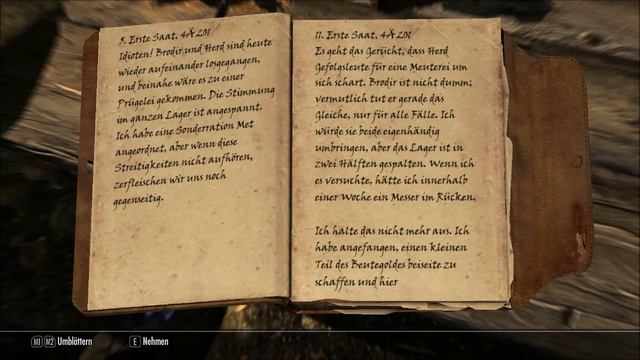 5. Erste Saat, 4Ä201
Idioten! Brodir und Herd sind heute
wieder aufeinander losgegangen,
und beinahe wäre es zu einer
Prügelei gekommen. Die Stimmung
im ganzen Lager ist angespannt.
Ich habe eine Sonderration Met
angeordnet, aber wenn diese
Streitigkeiten nicht aufhören,
zerfleischen wir uns noch
gegenseitig.
11. Erste Saat, 4Ä201
Es geht das Gerücht, dass Herd
Gefolgsleute für eine Meuterei um
sich schart. Brodir ist nicht dumm;
vermutlich tut er gerade das
Gleiche, nur für alle Fälle. Ich
würde sie beide eigenhändig
umbringen, aber das Lager ist in
zwei Hälften gespalten. Wenn ich
es versuchte, hätte ich innerhalb
einer Woche ein Messer im Rücken.
Ich halte das nicht mehr aus. Ich
habe angefangen, einen kleinen
Teil des Beutegoldes beiseite zu
schaffen und hier
M1 M2 Umblättern E Nehmen